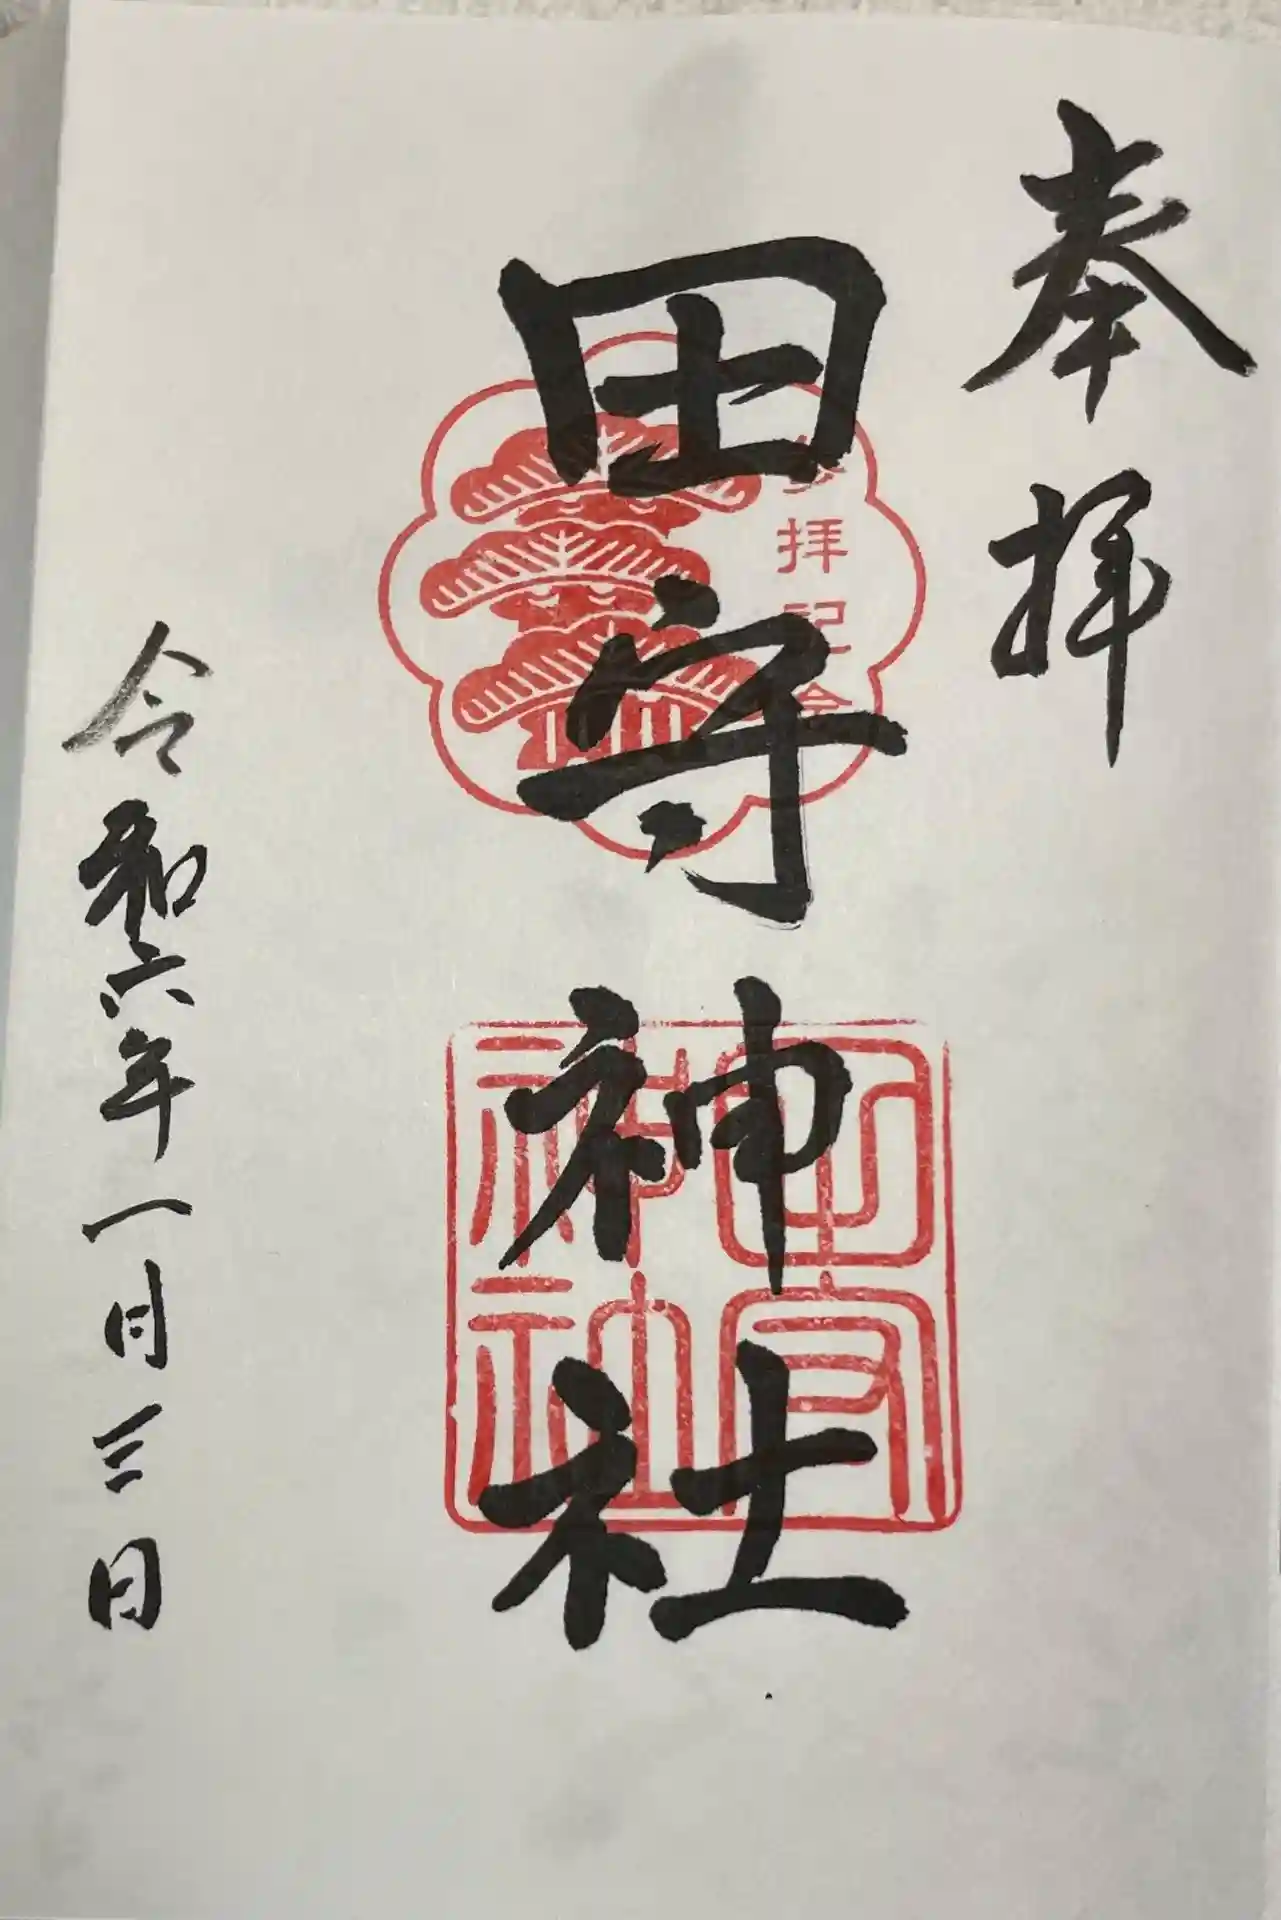 奉拝
参拝記念
田守神社
田守神社
令和六年一月三日